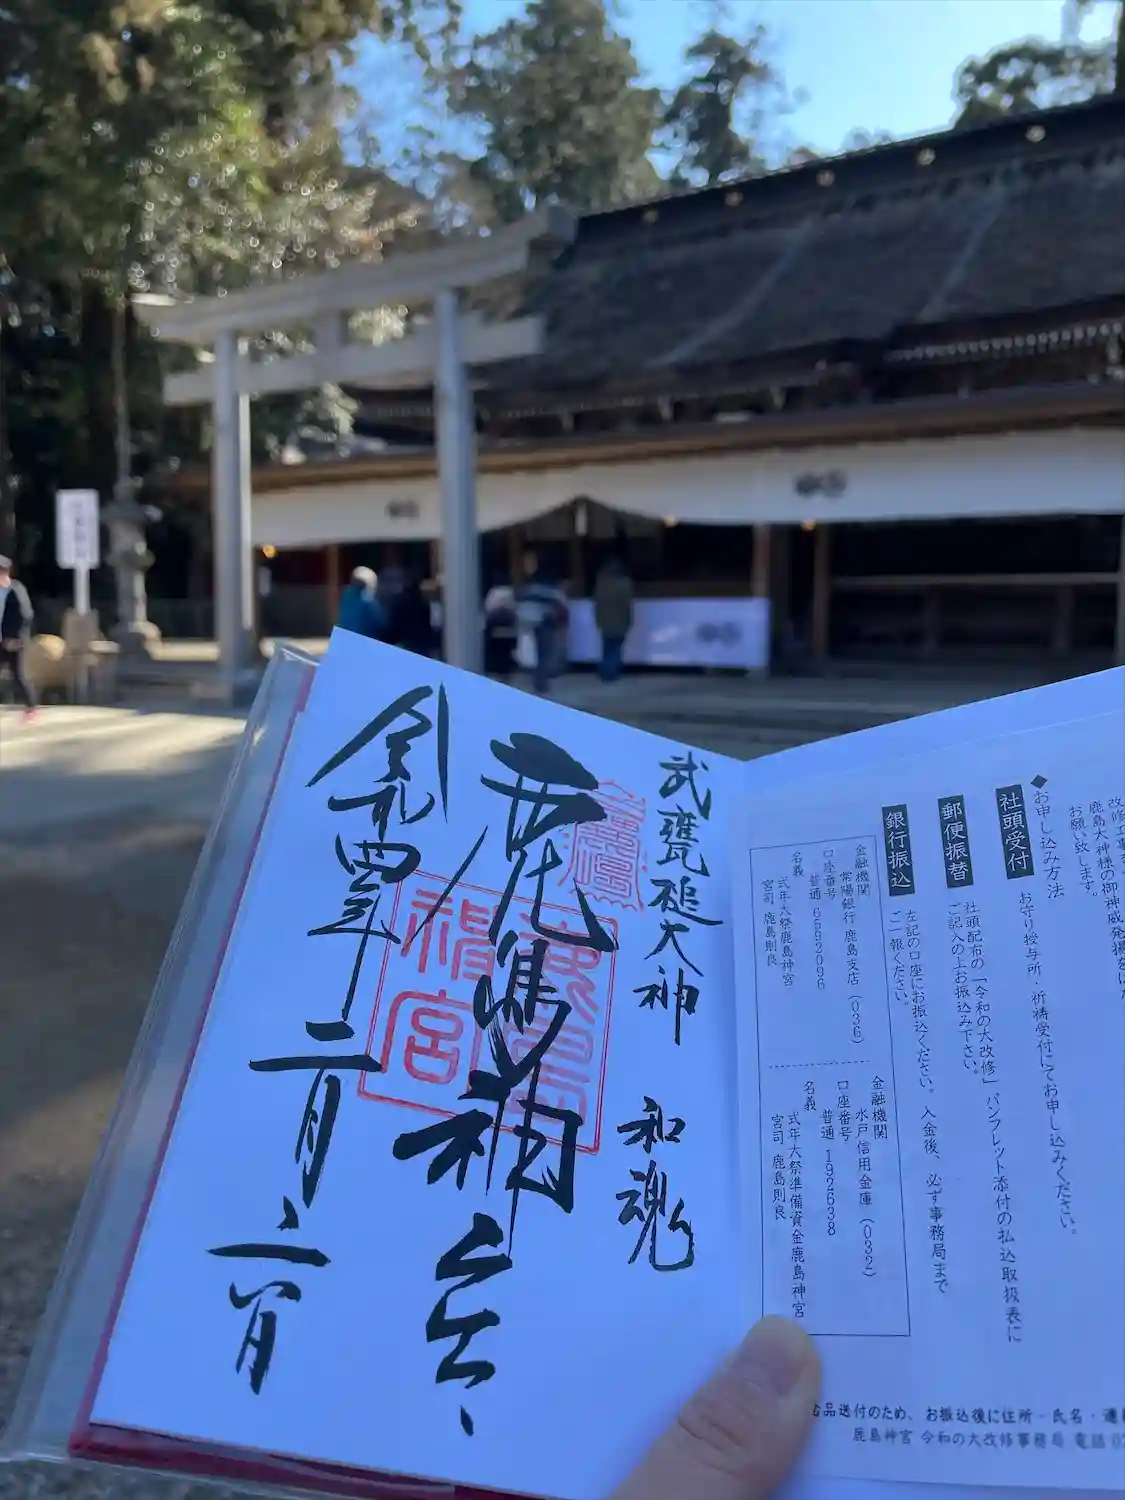 改修工事を
鹿島大神様の御神威発揚を
お願い致します。
◆お申し込み方法
社頭受付
お守り授与所・祈祷受付にてお申し込みください。
郵便振替
社頭配布の「令和の大改修」パンフレット添付の払込取扱表に
ご記入の上お振込み下さい。
銀行振込
左記の口座にお振込ください。 入金後、必ず事務局まで
ご一報ください。
金融機関
常陽銀行 鹿島支店(036)
口座番号
普通 6592096
名義
式年大祭鹿島神宮
宮司 鹿島則良
金融機関
水戸信用金庫(032)
口座番号
普通 192638
名義
式年大祭準備資金鹿島神宮
宮司 鹿島則良
品送付のため、お振込後に住所・氏名・連
鹿島神宮 令和の大改修事務局 電話 0
武甕槌大神 和魂
鹿島神宮
令和四年二月六日